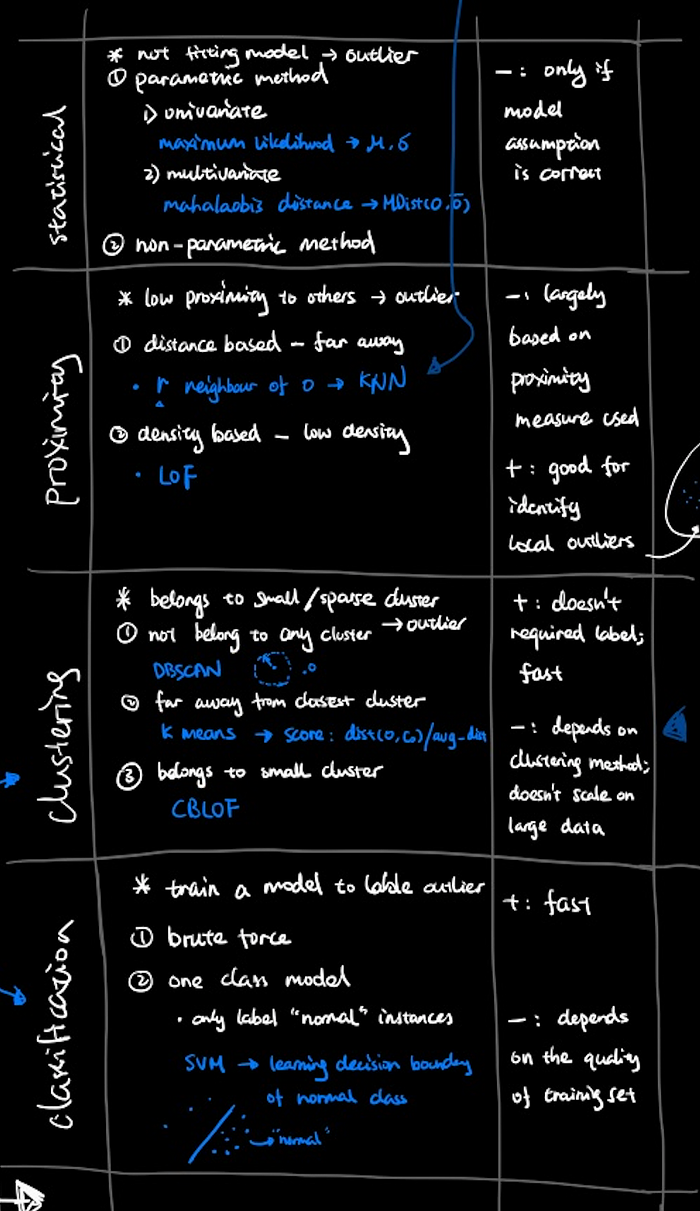 statistical
* not fitting model → outlier
① parametric method
1) univariate
maximum likelihood → μ, σ
2) multivariate
mahalaobis distance → MDist(o, ō)
② non-parametric method
– : only if
model
assumption
is correct
proximity
* low proximity to others → outlier
① distance based – far away
• r neighbour of o → KNN
② density based – low density
• LOF
– : largely
based on
proximity
measure used
+ : good for
identify
local outliers
clustering
* belongs to small/sparse cluster
→ outlier
① not belong to any cluster
DBSCAN
② far away from closest cluster
k means → score: dist(o, co)/avg_dist
③ belongs to small cluster
CBLOF
+ : doesn't
required label;
fast
– : depends on
clustering method;
doesn't scale on
large data
classification
* train a model to lable outlier
① brute force
② one class model
• only label "normal" instances
SVM → learning decision boundary
of normal class
→ "normal"
+ : fast
– : depends
on the quality
of training set